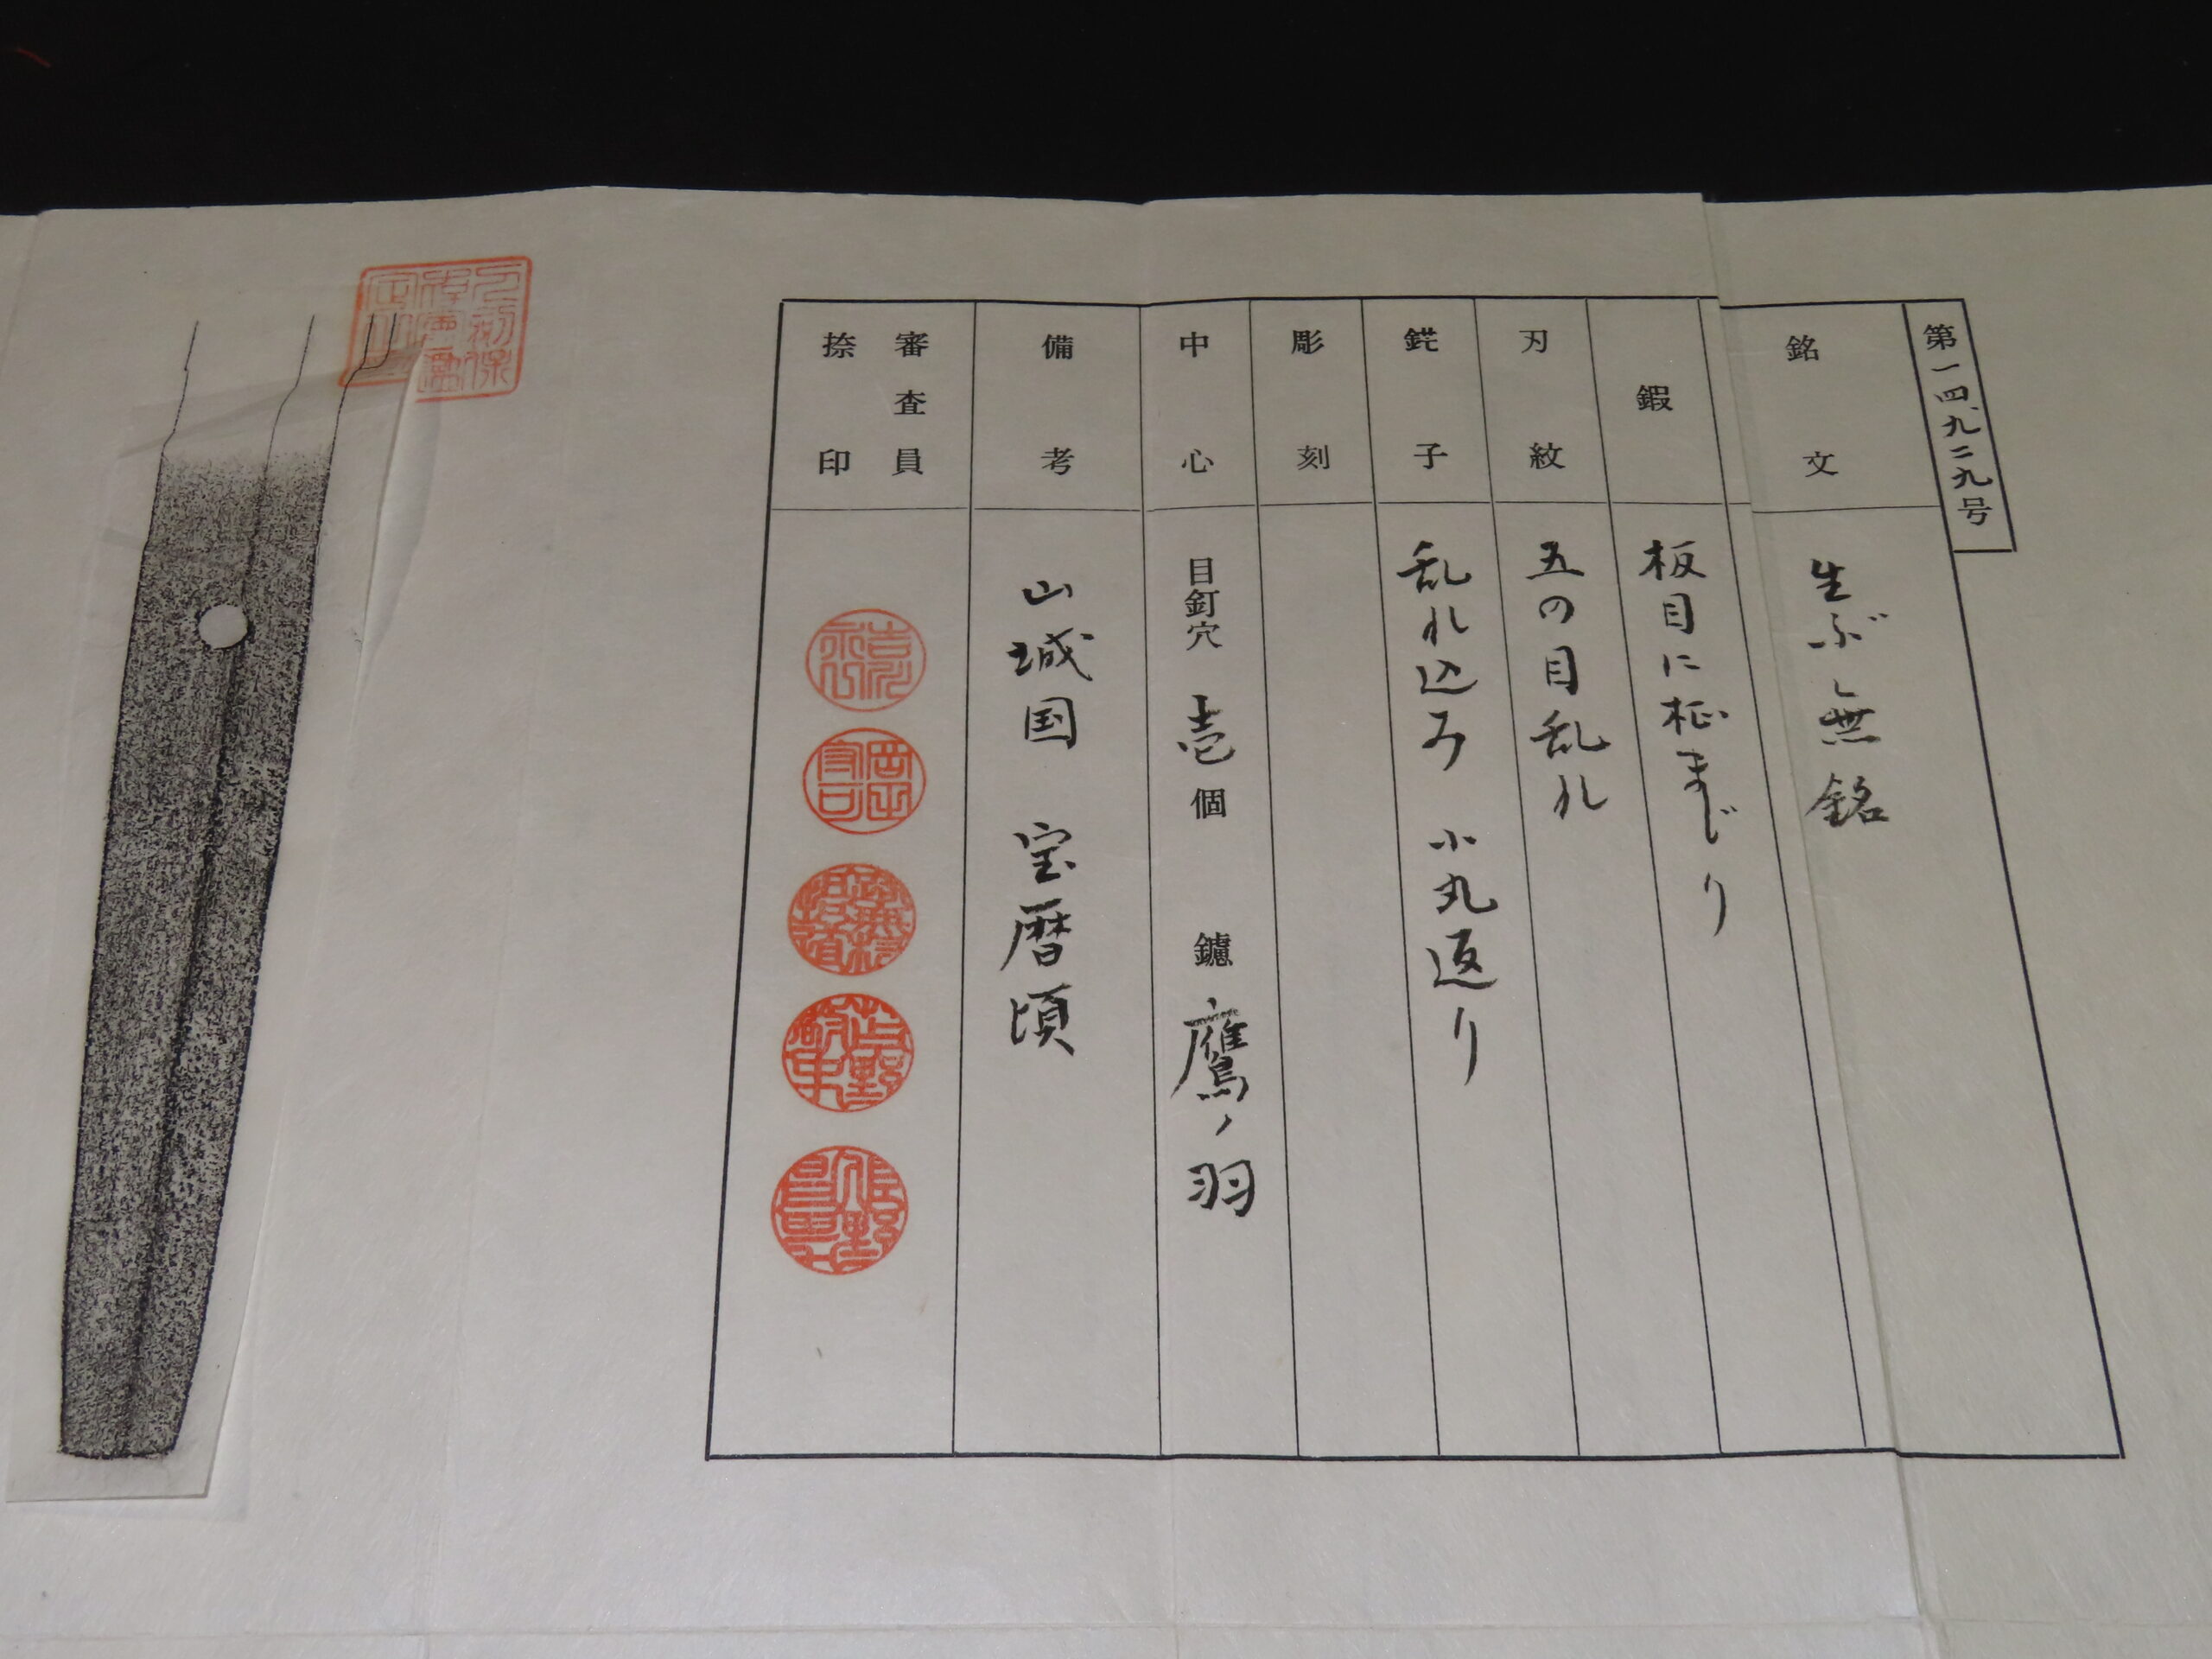 第一四、九二九号
銘文
生ぶ無銘
鍜
板目に柾まじり
刃紋
五の目乱れ
鋩子
乱れ込み 小丸返り
彫刻
中心
目釘穴 壱個 鑢 鷹ノ羽
備考
山城国 宝暦頃
審査員
捺印